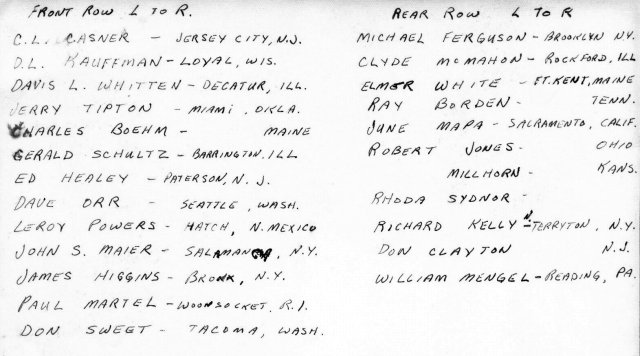 FRONT ROW L TO R.
C.L. CASNER - JERSEY CITY, N.J.
D.L. KAUFFMAN - LOYAL, WIS.
DAVIS L. WHITTEN - DECATUR, ILL.
JERRY TIPTON - MIAMI, OKLA.
CHARLES BOEHM - MAINE
GERALD SCHULTZ - BARRINGTON, ILL
ED HEALEY - PATERSON, N.J.
DAVE ORR - SEATTLE, WASH.
LEROY POWERS - HATCH, N. MEXICO
JOHN S. MAIER - SALAMANCA, N.Y.
JAMES HIGGINS - BRONX, N.Y.
PAUL MARTEL - WOONSOCKET, R.I.
DON SWEET - TACOMA, WASH.
REAR ROW L TO R
MICHAEL FERGUSON - BROOKLYN N.Y.
CLYDE MCMAHON - ROCKFORD, ILL
ELMER WHITE - FT. KENT, MAINE
RAY BORDEN - TENN.
JUNE MAPA - SACRAMENTO, CALIF.
ROBERT JONES - OHIO
MILLHORN - KANS.
RHODA SYDNOR -
RICHARD KELLY - N. TERRYTON, N.Y.
DON CLAYTON N.J.
WILLIAM MENGEL - READING, PA.